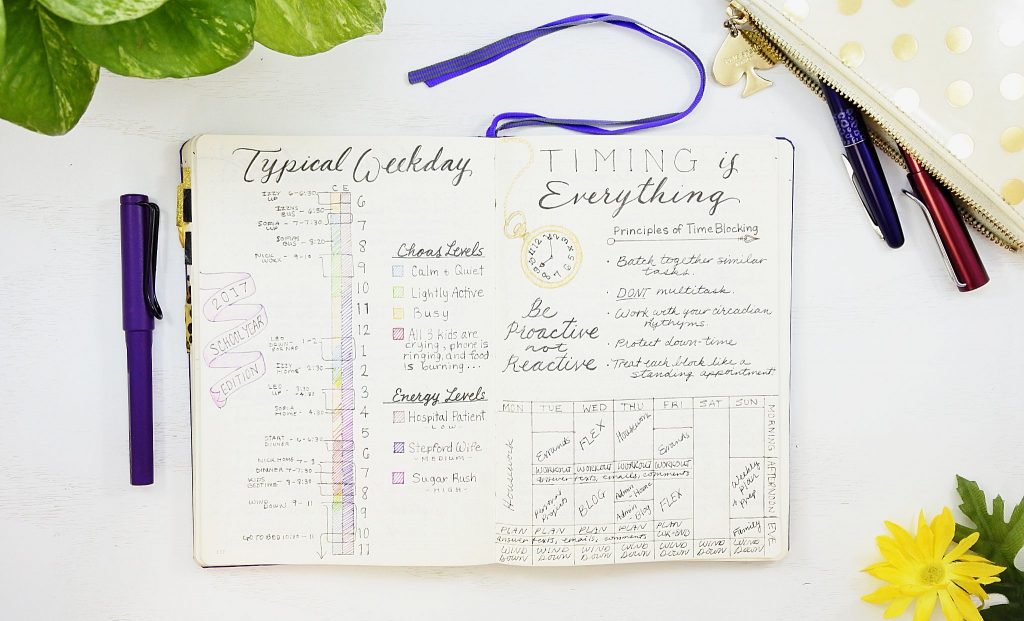 Typical Weekday
C E
IZZY UP 6-6:30
6
IZZYS BUS - 6:30
SOFIA UP - 7-7:30
7
SOFIAS BUS - 8:20
8
NICK WORK - 9-10
9
10
11
12
LEO DOWN FOR NAP 1-2
1
IZZY HOME 2:30
2
LEO UP 3:30 -4:30
3
SOFIA HOME - 4:30
4
5
START DINNER - 6-6:30
6
NICK HOME 7-8
7
DINNER - 7-7:30
KIDS BEDTIME - 8-8:30
8
WIND DOWN 9-11
9
10
GO TO BED 10:30-11
11
2017
SCHOOL YEAR
EDITION
Choas Levels
Calm + Quiet
Lightly Active
Busy
All 3 kids are
crying, phone is
ringing, and food
is burning...
Energy Levels
Hospital Patient
LOW
Stepford Wife
-MEDIUM-
Sugar Rush
-HIGH-
TIMING is
Everything
Be
Proactive
not
Reactive
Principles of Time Blocking
• Batch together similar
tasks.
• DONT multitask.
• Work with your circadian
rythyms.
• Protect down-time
• Treat each block like a
standing appointment
MON TUE WED THU FRI SAT SUN
MORNING
AFTERNOON
EVE
Housework
Errands
FLEX
Housework
Errands
WORKOUT WORKOUT WORKOUT WORKOUT
answer texts, emails, comments
Personal Projects
BLOG
Admin-Home
Admin-Blog
FLEX
Weekly Plan + Prep
PLAN PLAN PLAN PLAN PLAN WK-END
Family
answer texts, emails, comments
WIND DOWN WIND DOWN WIND DOWN WIND DOWN WIND DOWN WIND DOWN WIND DOWN